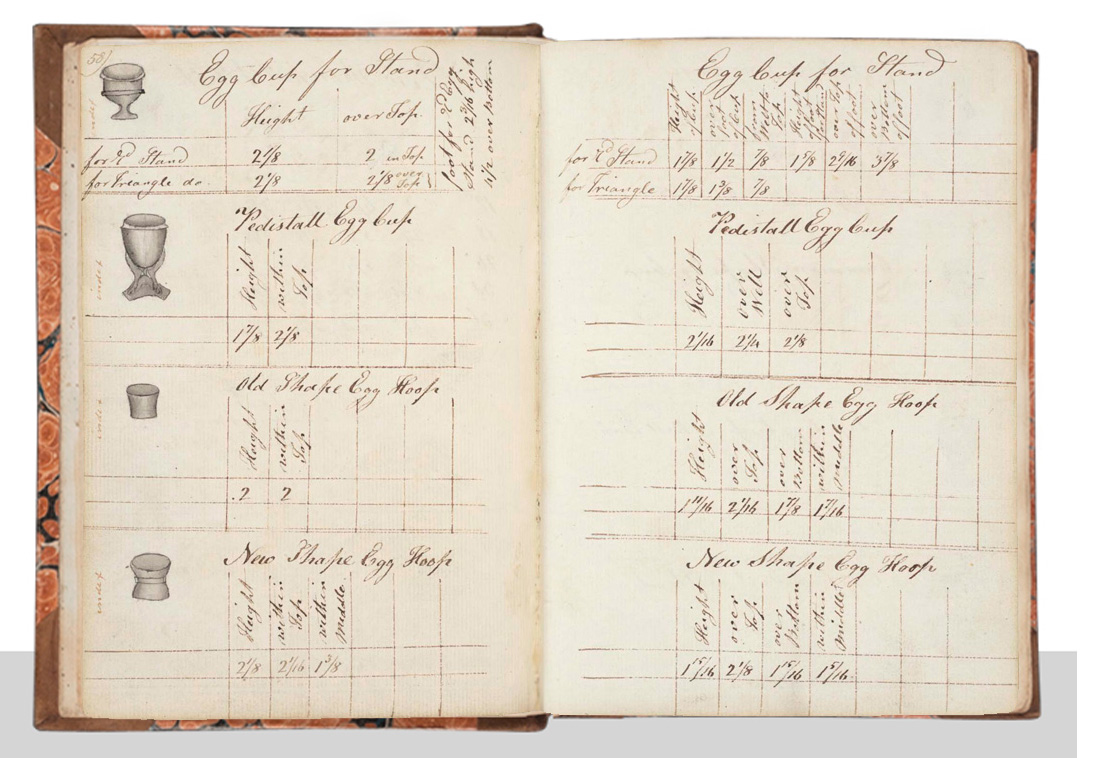 58
index
Egg Cup for Stand
Height
over Top
foot for Rd Egg
Stand 2 7/16 high
1 1/2 over Bottom
for Rd Stand 2 1/8 2 in Top
for Triangle do. 2 1/8 2 1/8 over Top
index
Pedistall Egg Cup
Height
within Top
1 7/8 2 1/8
index
Old Shape Egg Hoop
Height
within Top
2 2
index
New Shape Egg Hoop
Height
within Top
within middle
2 1/8 2 1/16 1 3/8
Egg Cup for Stand
Height of Cup
over foot of Cup
from Top
Height of foot
over Top of foot
over Bottom of foot
for Rd Stand 1 7/8 1 1/2 7/8 1 5/8 3 7/8
for Triangle 1 7/8 1 3/8 7/8
Pedistall Egg Cup
Height
over Well
over Top
2 1/16 2 1/4 2 1/8
Old Shape Egg Hoop
Height
over Top
over Bottom
within middle
1 11/16 2 1/16 1 7/8 1 7/16
New Shape Egg Hoop
Height
over Top
over Bottom
within middle
1 15/16 2 1/8 1 15/16 1 5/16